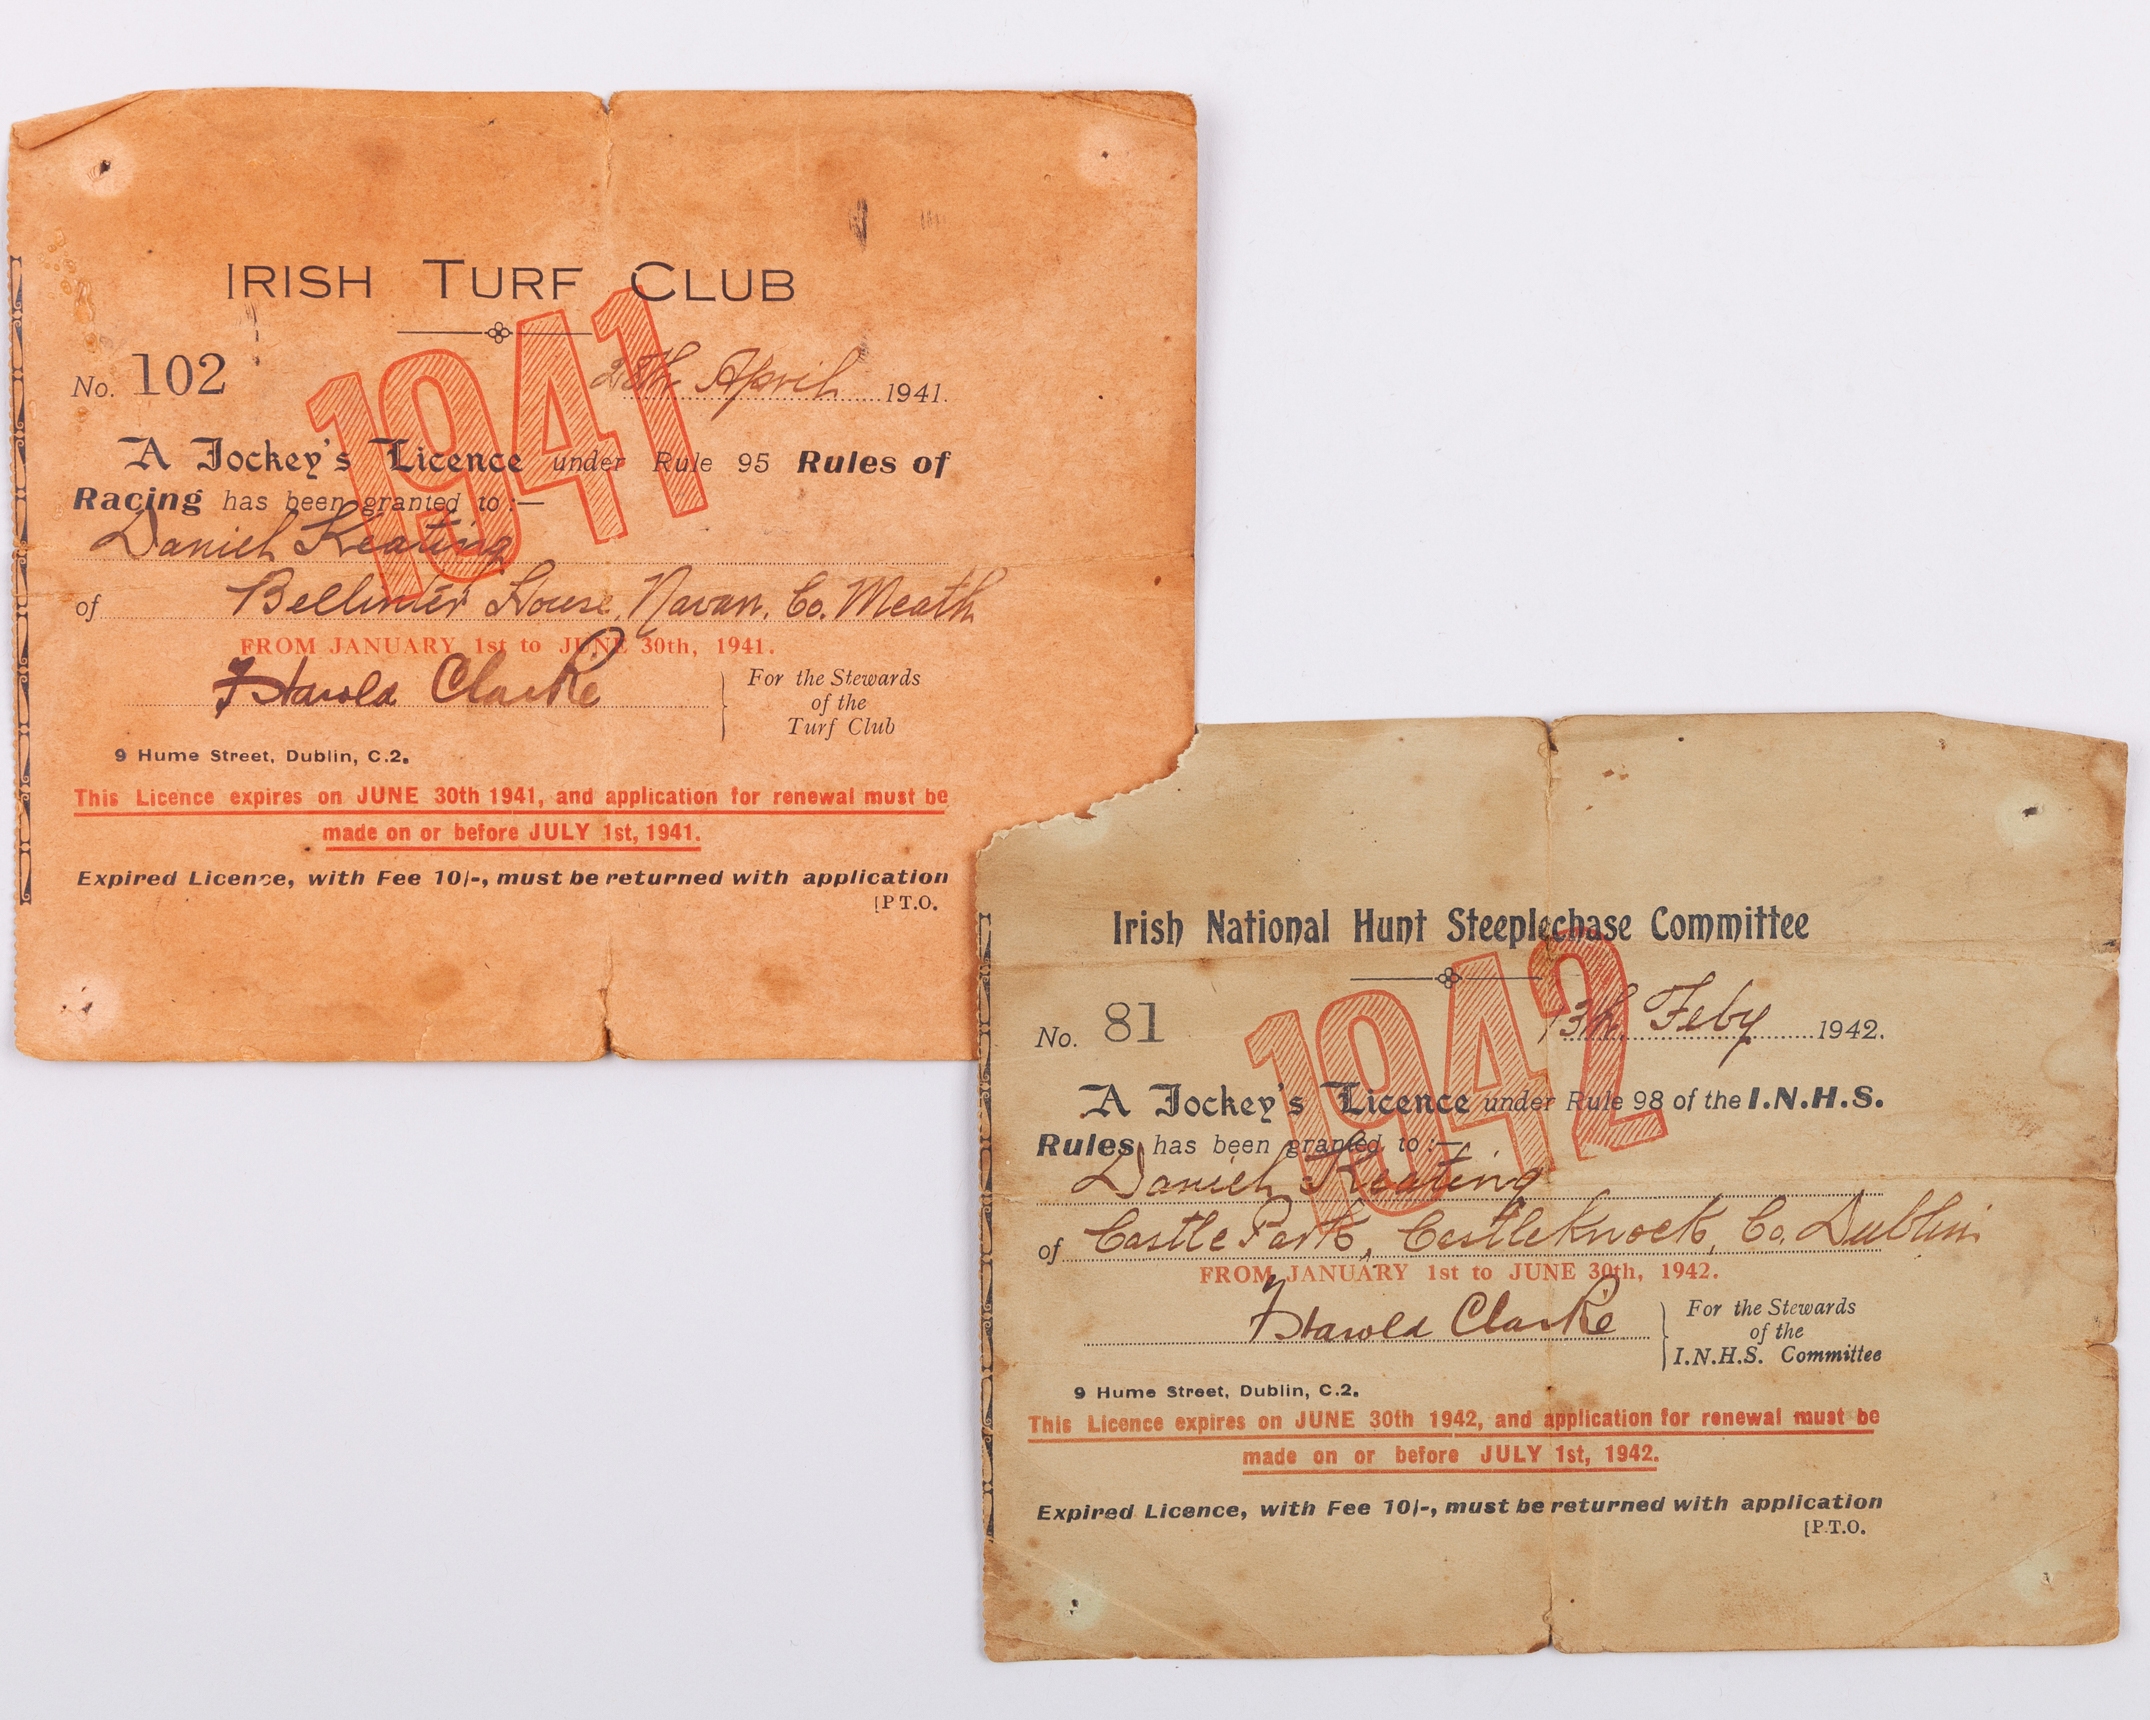 IRISH TURF CLUB
1941
No. 102 28th April 1941.
A Jockey's Licence under Rule 95 Rules of
Racing has been granted to :—
Daniel Keating
of Bellinter House, Navan, Co. Meath
FROM JANUARY 1st to JUNE 30th, 1941.
F Harold Clarke
For the Stewards
of the
Turf Club
9 Hume Street, Dublin, C.2.
This Licence expires on JUNE 30th 1941, and application for renewal must be
made on or before JULY 1st, 1941.
Expired Licence, with Fee 10/-, must be returned with application
[P T.O.
Irish National Hunt Steeplechase Committee
1942
No. 81 13th Feby 1942.
A Jockey's Licence under Rule 98 of the I.N.H.S.
Rules has been granted to :—
Daniel Keating
of Castle Park, Castleknock, Co. Dublin
FROM JANUARY 1st to JUNE 30th, 1942.
F Harold Clarke
For the Stewards
of the
I.N.H.S. Committee
9 Hume Street, Dublin, C.2.
This Licence expires on JUNE 30th 1942, and application for renewal must be
made on or before JULY 1st, 1942.
Expired Licence, with Fee 10/-, must be returned with application
[P.T.O.